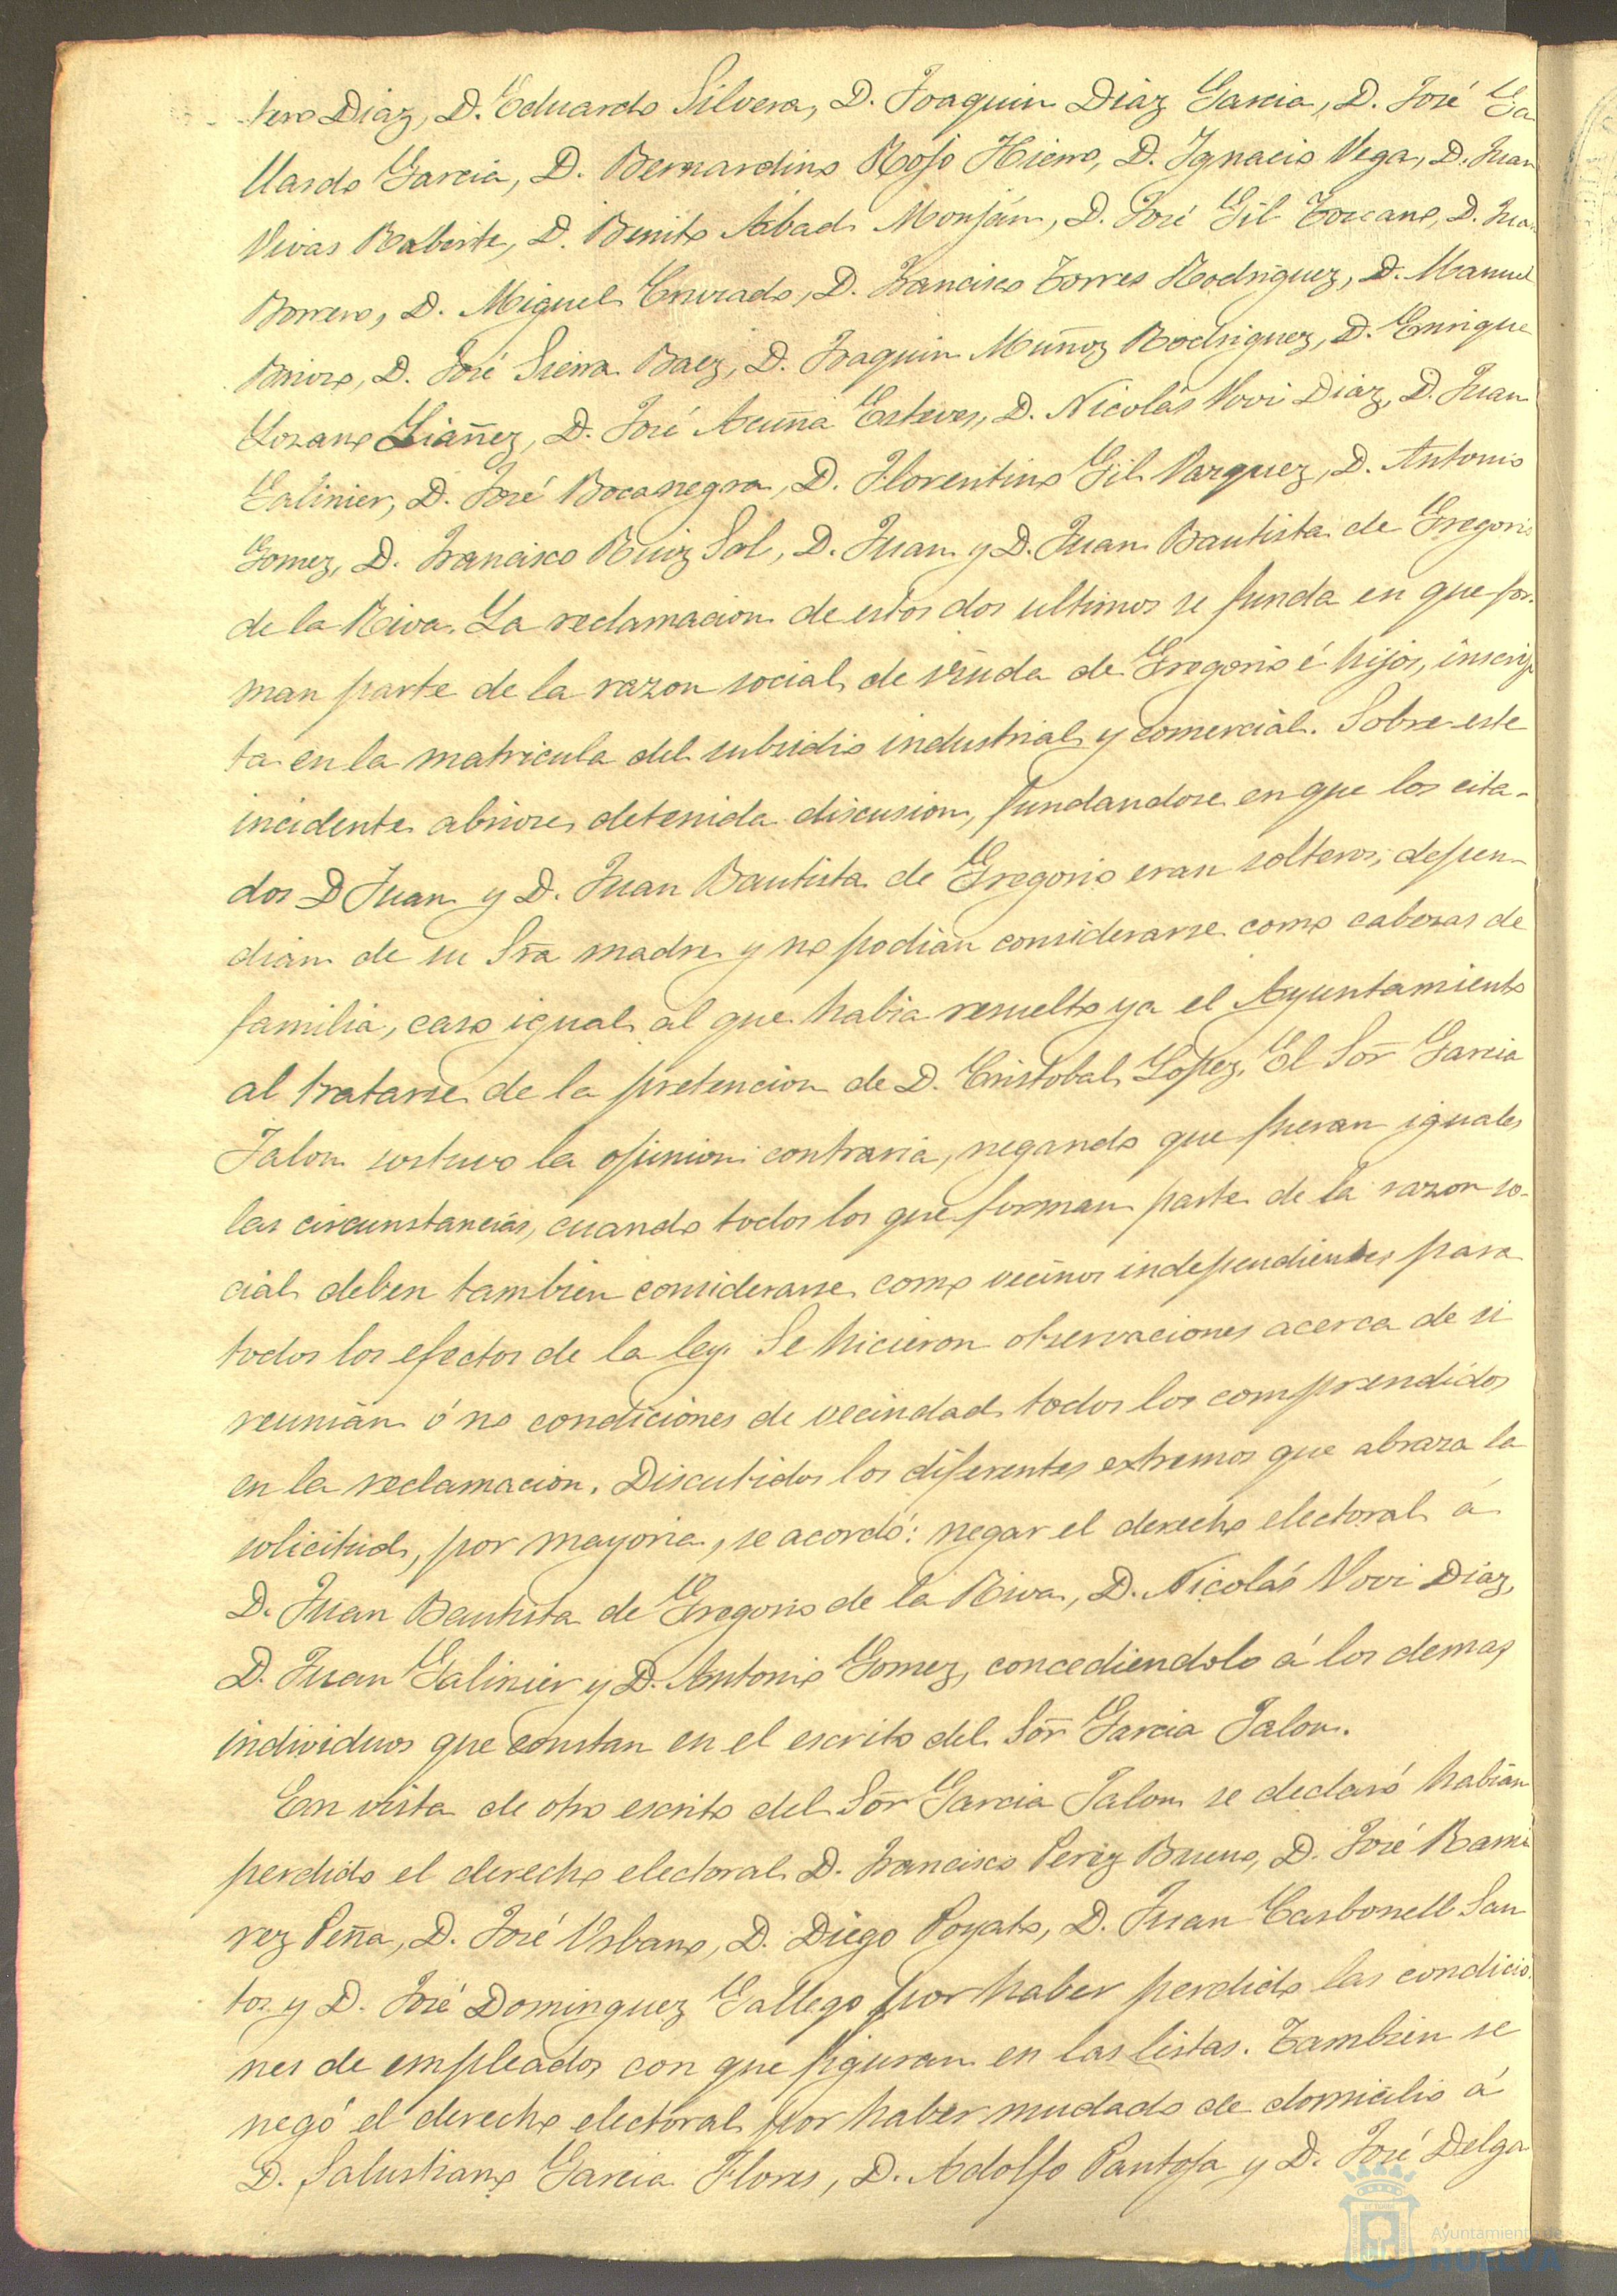 tero Diaz, D. Eduardo Silvera, D. Joaquin Diaz Garcia, D. José Ga
llardo Garcia, D. Bernardino Rojo Hierro, D. Ignacio Vega, D. Juan
Vivas Rabeste, D. Benito Abad Monján, D. José Gil Toscano, D. Juan
Borrero, D. Miguel Conrado, D. Francisco Torres Rodriguez, D. Manuel
D. José Sierra Baez, D. Joaquin Muñoz Rodriguez, D. Enrique
Lozano Liañez, D. José Acuña Esteves, D. Nicolás Vovi Diaz, D. Juan
Galinier, D. José Bocanegra, D. Florentino Gil Vazquez, D. Antonio
Gomez, D. Francisco Ruiz Sol, D. Juan y D. Juan Bautista de Gregorio
de la Riva. La reclamacion de estos dos ultimos se funda en que for-
man parte de la razon social de viuda de Gregorio é hijos, inscrip
ta en la matricula del subsidio industrial y comercial. Sobre este
incidente abriose detenida discusion, fundandose en que los cita-
dos D Juan y D. Juan Bautista de Gregorio eran solteros, depen-
dian de su Sra madre y no podian considerarse como cabezas de
familia, caso igual al que habia resuelto ya el Ayuntamiento
al tratarse de la pretencion de D. Cristobal Lopez. El Sor Garcia
Jalon sostuvo la opinion contraria, negando que fueran iguales
las circunstancias, cuando todos los que forman parte de la razon so-
cial deben tambien considerarse como vecinos independientes para
todos los efectos de la ley. Se hicieron observaciones acerca de si
reunian ó no condiciones de vecindad todos los comprendidos
en la reclamacion. Discutidos los diferentes extremos que abraza la
solicitud, por mayoria, se acordó: negar el derecho electoral á
D. Juan Bautista de Gregorio de la Riva, D. Nicolás Vovi Diaz,
D. Juan Galinier y D. Antonio Gomez, concediendolo á los demas
individuos que constan en el escrito del Sor Garcia Jalon.
En vista de otro escrito del Sor Garcia Jalon se declaró habian
perdido el derecho electoral D. Francisco Perez Bueno, D. José Rami
rez Peña, D. José Urbano, D. Diego Poyato, D. Juan Carbonell San
tos y D. José Dominguez Gallego por haber perdido las condicio
nes de empleados con que figuran en las listas. Tambien se
negó el derecho electoral por haber mudado de domicilio á
D. Salustiano Garcia Flores, D. Adolfo Pantoja y D. José Delga
Ayuntamiento de
HUELVA